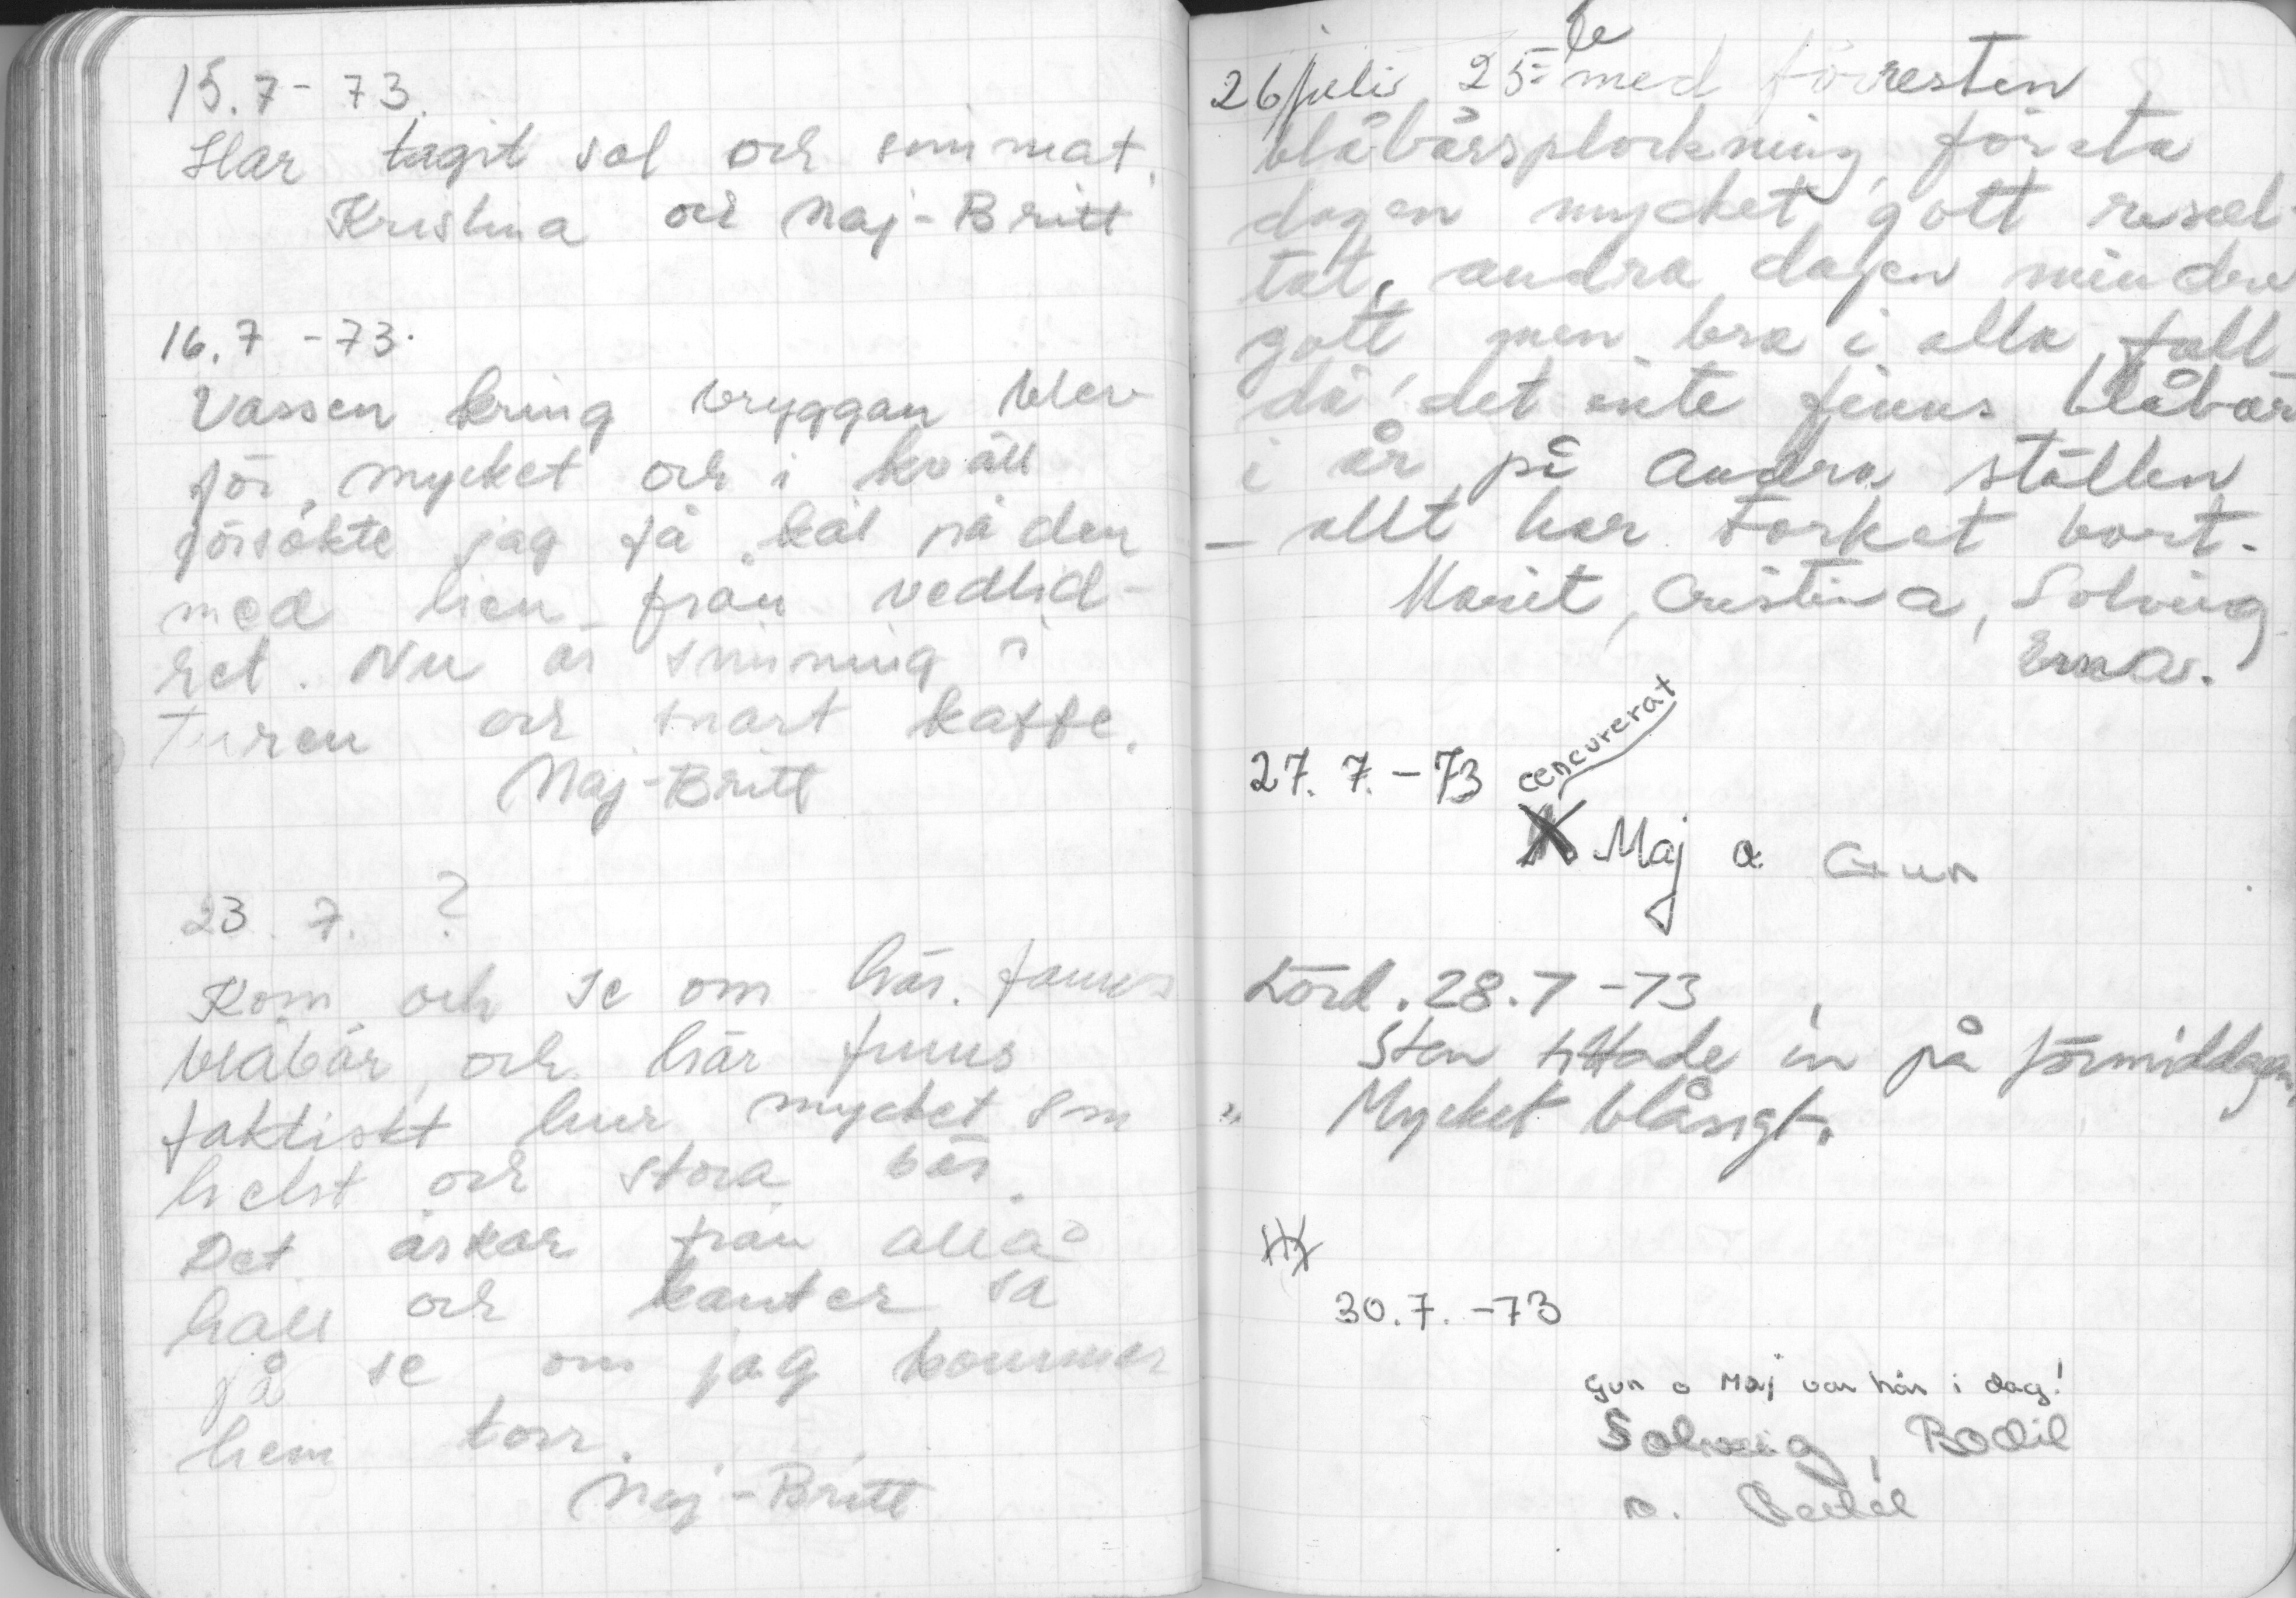 15.7-73.
Har tagit sol och simmat.
Kristina och Maj-Britt
16.7-73.
Vassen kring bryggan blev
för mycket och i kväll
försökte jag få kål på den
med lien från vedlid-
ret. Nu är simning i
turen och snart kaffe.
Maj-Britt
23.7. ?
Kom och se om här fanns
blåbär, och här finns
faktiskt hur mycket som
helst och stora bär.
Det åskar från alla
håll och kanter så
få se om jag kommer
hem torr.
Maj-Britt
26/juli 25te med förresten
blåbärsplockning, första
dagen mycket gott resul-
tat, andra dagen mindre
gott men bra i alla fall
då det inte finns blåbär
i år på andra ställen
- allt har torkat bort.
Marit, Cristina, Solveig
Erna.
27.7.-73 cencurerat
Maj o Gun
Lörd. 28.7-73
Sten tittade in på förmiddagen,
Mycket blåsigt.
30.7.-73
Gun o Maj var här i dag!
Solveig, Bodil
o.